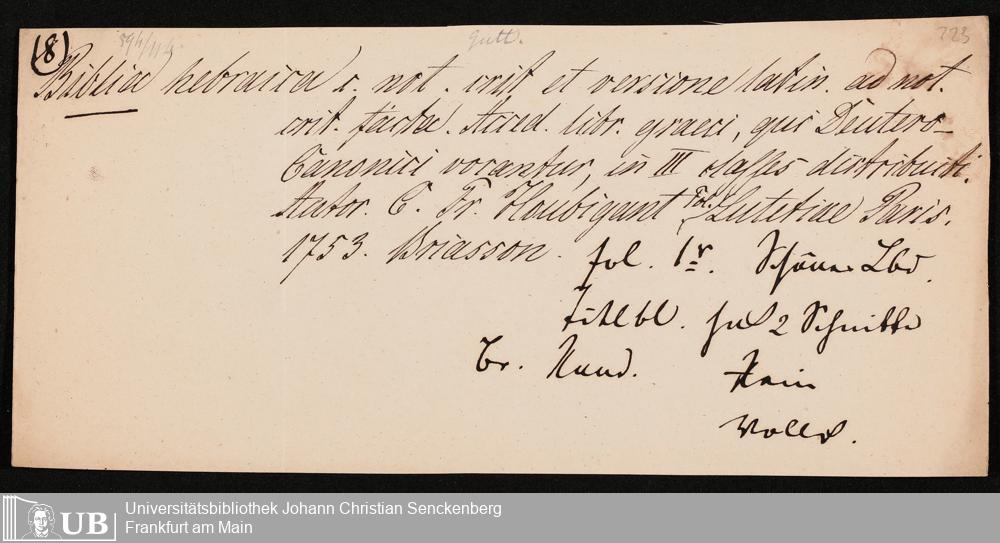 (8) 223
Biblia hebraica c. not. crit et versione latin. ad not.
crit. facta. Acced. libr. graeci, qui Deutero-
Canonici vocantur, in III classes distributi.
Autor. C. Fr. Houbigant Lutetiae Paris.
1753. Briasson.
fol. Schöner Lbd.
Titelbl. hat 2 Schnitte
Br. Rand.
Universitätsbibliothek Johann Christian Senckenberg
UB Frankfurt am Main